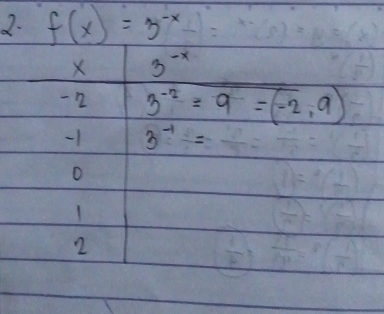 2. f(x) = 3^-x
x 3^-x
-2 3^-2 = 9 = (-2, 9)
-1 3^-1 =
0
1
2